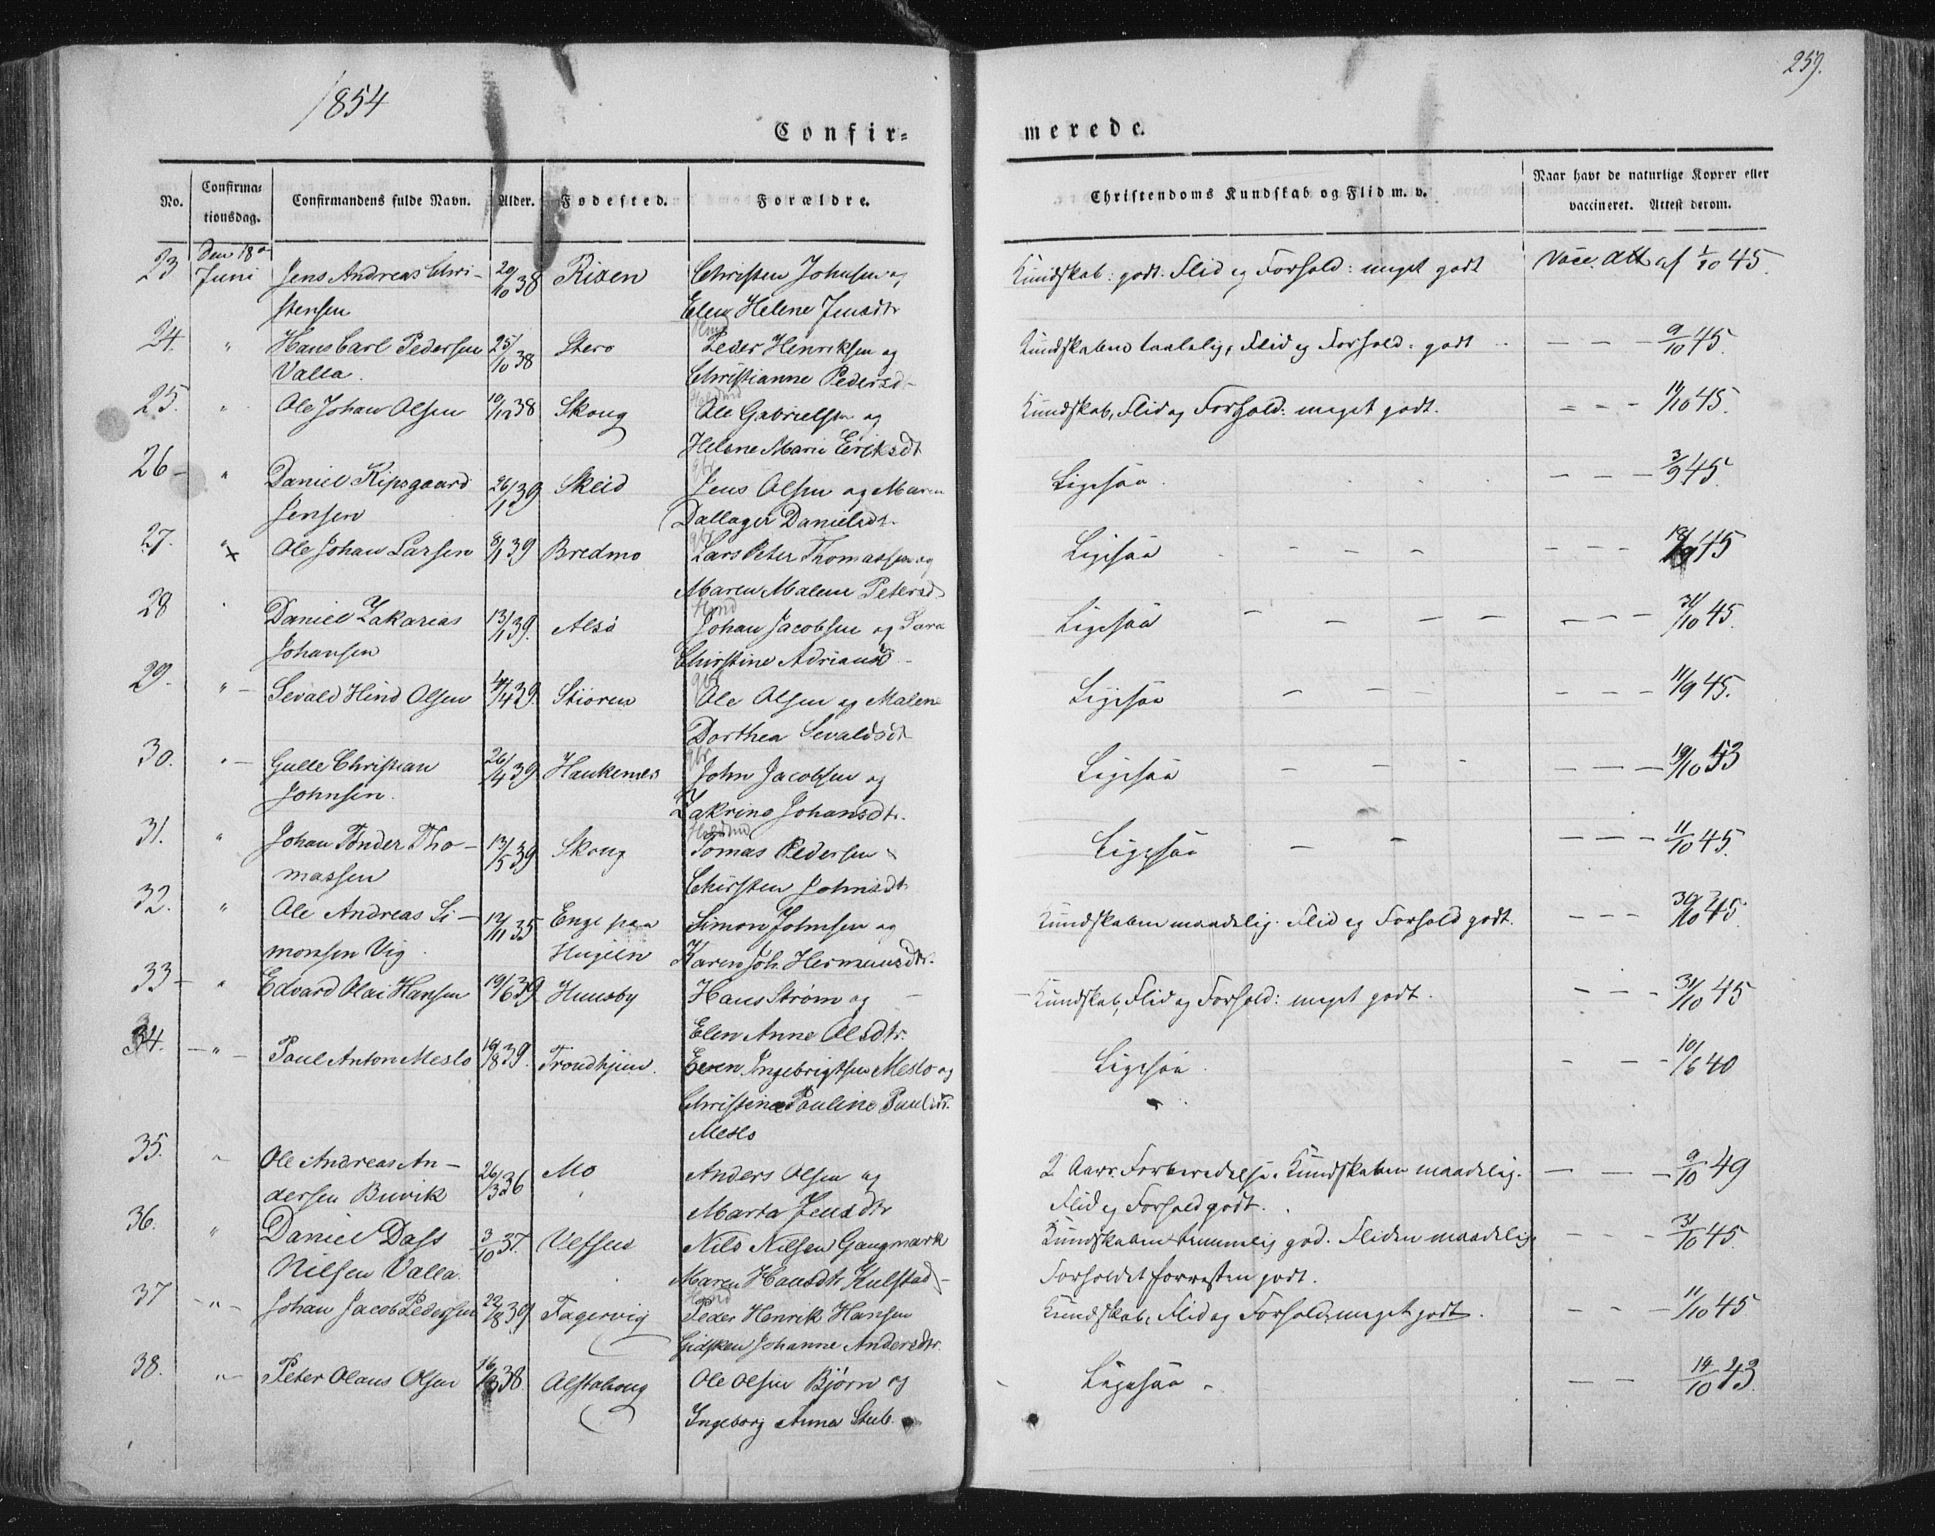 1854
259.
Confir= merede.
No. Confirma= tionsdag. Confirmandens fulde Navn. Alder. Fødested. Forældre. Christendoms Kundskab og Flid m. v. Naar havt de naturlige Kopper eller vaccineret. Attest derom.
23 Den 18de Juni Jens Andreas Chri- 20/10 38 Risen Christen Johnsen og Kundskab: godt. Flid og Forhold: meget godt Vacc. Att. af 1/10 45.
stensen Elen Helene Jensdtr
24. " Hans Carl Pedersen 25/10 38 Stero Peder Henriksen og Kundskaben taalelig, Flid og Forhold: godt - - - 9/10 45.
Valla. Christianne Pedersd-
25. " Ole Johan Olsen 10/12 38 Skoug Ole Gabrielsen og Kundskab, Flid og Forhold: meget godt. - - - 11/10 45.
Helene Marie Eriksdt
26 - " Daniel Kipsgaard 26/1 39 Skeid Jens Olsen og Maren Ligesaa. - - - 3/9 45.
Jensen Dallager Danielsdt.
27. " x Ole Johan Larsen 8/1 39 Bredmo Lars Peter Thomassen og Ligesaa - - - 18/9 45
Maren Malene Petersd
28 Daniel Zakarias 13/1 39. Alsö Johan Jacobsen og Sara Ligesaa - - - 31/10 45.
Johansen Christine Adriansd -
29. " - Sevald Hind Olsen 4/4 39. Stioren Ole Olsen og Malene Ligesaa - - - 11/9 45.
Dorthea Sevaldsdt
30. " - Gulle Christian 26/4 39 Haukenes John Jacobsen og Ligesaa - - - 19/10 53
Johnsen. Zakrine Johansdtr.
31. " Johan Tønder Tho- 13/5 39 Skoug Tomas Pedersen & Ligesaa - - - 11/10 45.
massen Chirsten Johnsdt
32. " Ole Andreas Si- 12/11 35 Enge paa Simon Johnsen og Kundskaben maadelig. Flid og Forhold godt. - - - 30/10 45.
monsen Vig. Hugeln Karen Joh. Hermansdtr.
33 - " Edvard Olai Hansen 19/6 39 Huusby Hans Strøm og Kundskab, Flid og Forhold: meget godt. - - - 31/10 45
Elen Anne Olsdtr.
34. - " - Paul Anton Meslo 19/8 39. Trondhjem. Even Ingebrigtsen Meslo og Ligesaa. - - - 10/6 40
Christine Pauline Paulsdtr.
Meslo
35. " Ole Andreas An- 26/3 36 Mo Anders Olsen og 2 Aars Forberedelse. Kundskaben maadelig. - - - 9/10 49
dersen Buvik Marta Jensdtr Flid og Forhold godt.
36. " Daniel Dass 3/10 37. Vefsen Nils Nilsen Gangmark Kundskaben temmelig god. Fliden maadelig, - - - 31/10 45.
Nilsen Valla. Maren Hansdtr Kulstad - Forholdet forresten godt.
37 - " - Johan Jacob Pedersen 22/8 39 Fagervig Peder Henrik Hansen Kundskab, Flid og Forhold: meget godt. - - - 11/10 45
Gidsken Johanne Andersdtr.
38. " - Peter Olaus Olsen 38. Alstahoug Ole Olsen Bjørn og Ligesaa - - - 14/10 43.
Ingeborg Anna Stub.